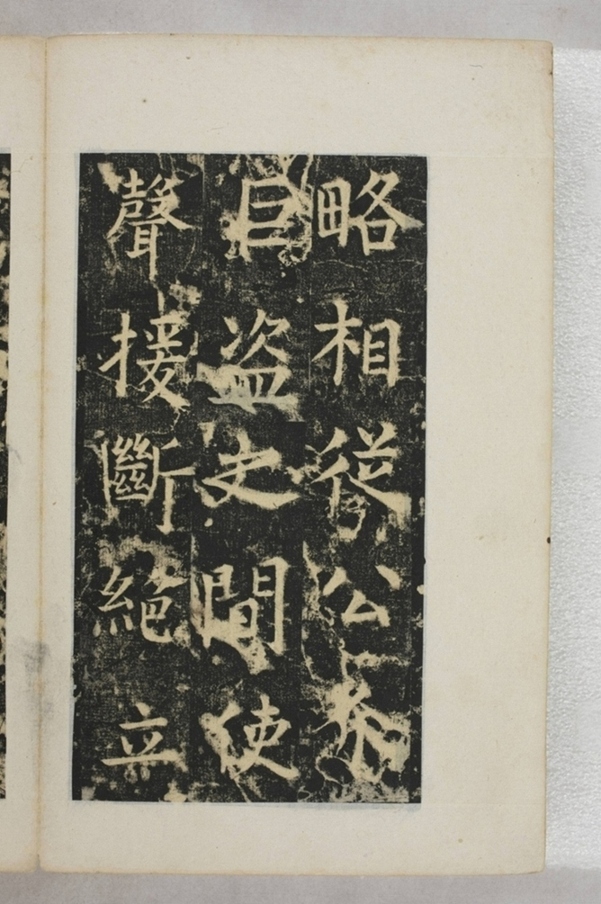 略相從公介
巨盜之間使
聲接斷絕立